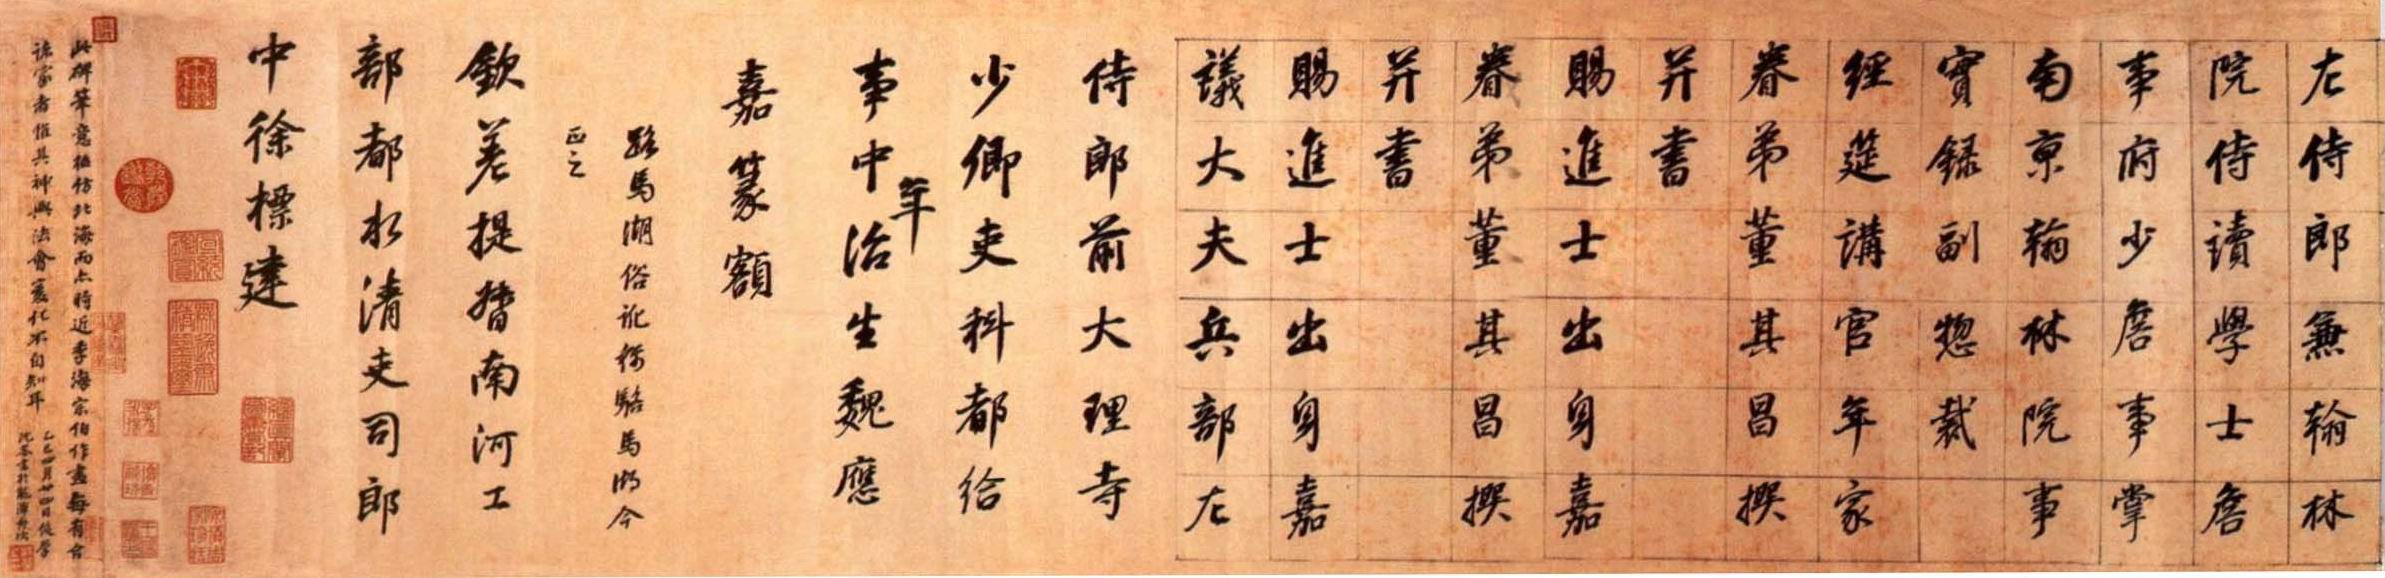 左侍郎兼翰林
院侍讀學士詹
事府少詹事掌
南京翰林院事
實録副惣裁
經筵講官年家
眷弟董其昌撰
并書
賜進士出身嘉
眷弟董其昌撰
并書
賜進士出身嘉
議大夫兵部左
侍郎前大理寺
少卿吏科都給
年
事中治生魏應
嘉篆額
路馬湖俗訛稱駱馬湖今
正之
欽差提督南河工
部都水清吏司郎
中徐標建
此碑筆意雖仿北海而亦時近季海宗伯作書每有合
諸家者惟其神與法會變化不自知耳
乙巳四月廿四日後學
沈荃書於龍潭舟次